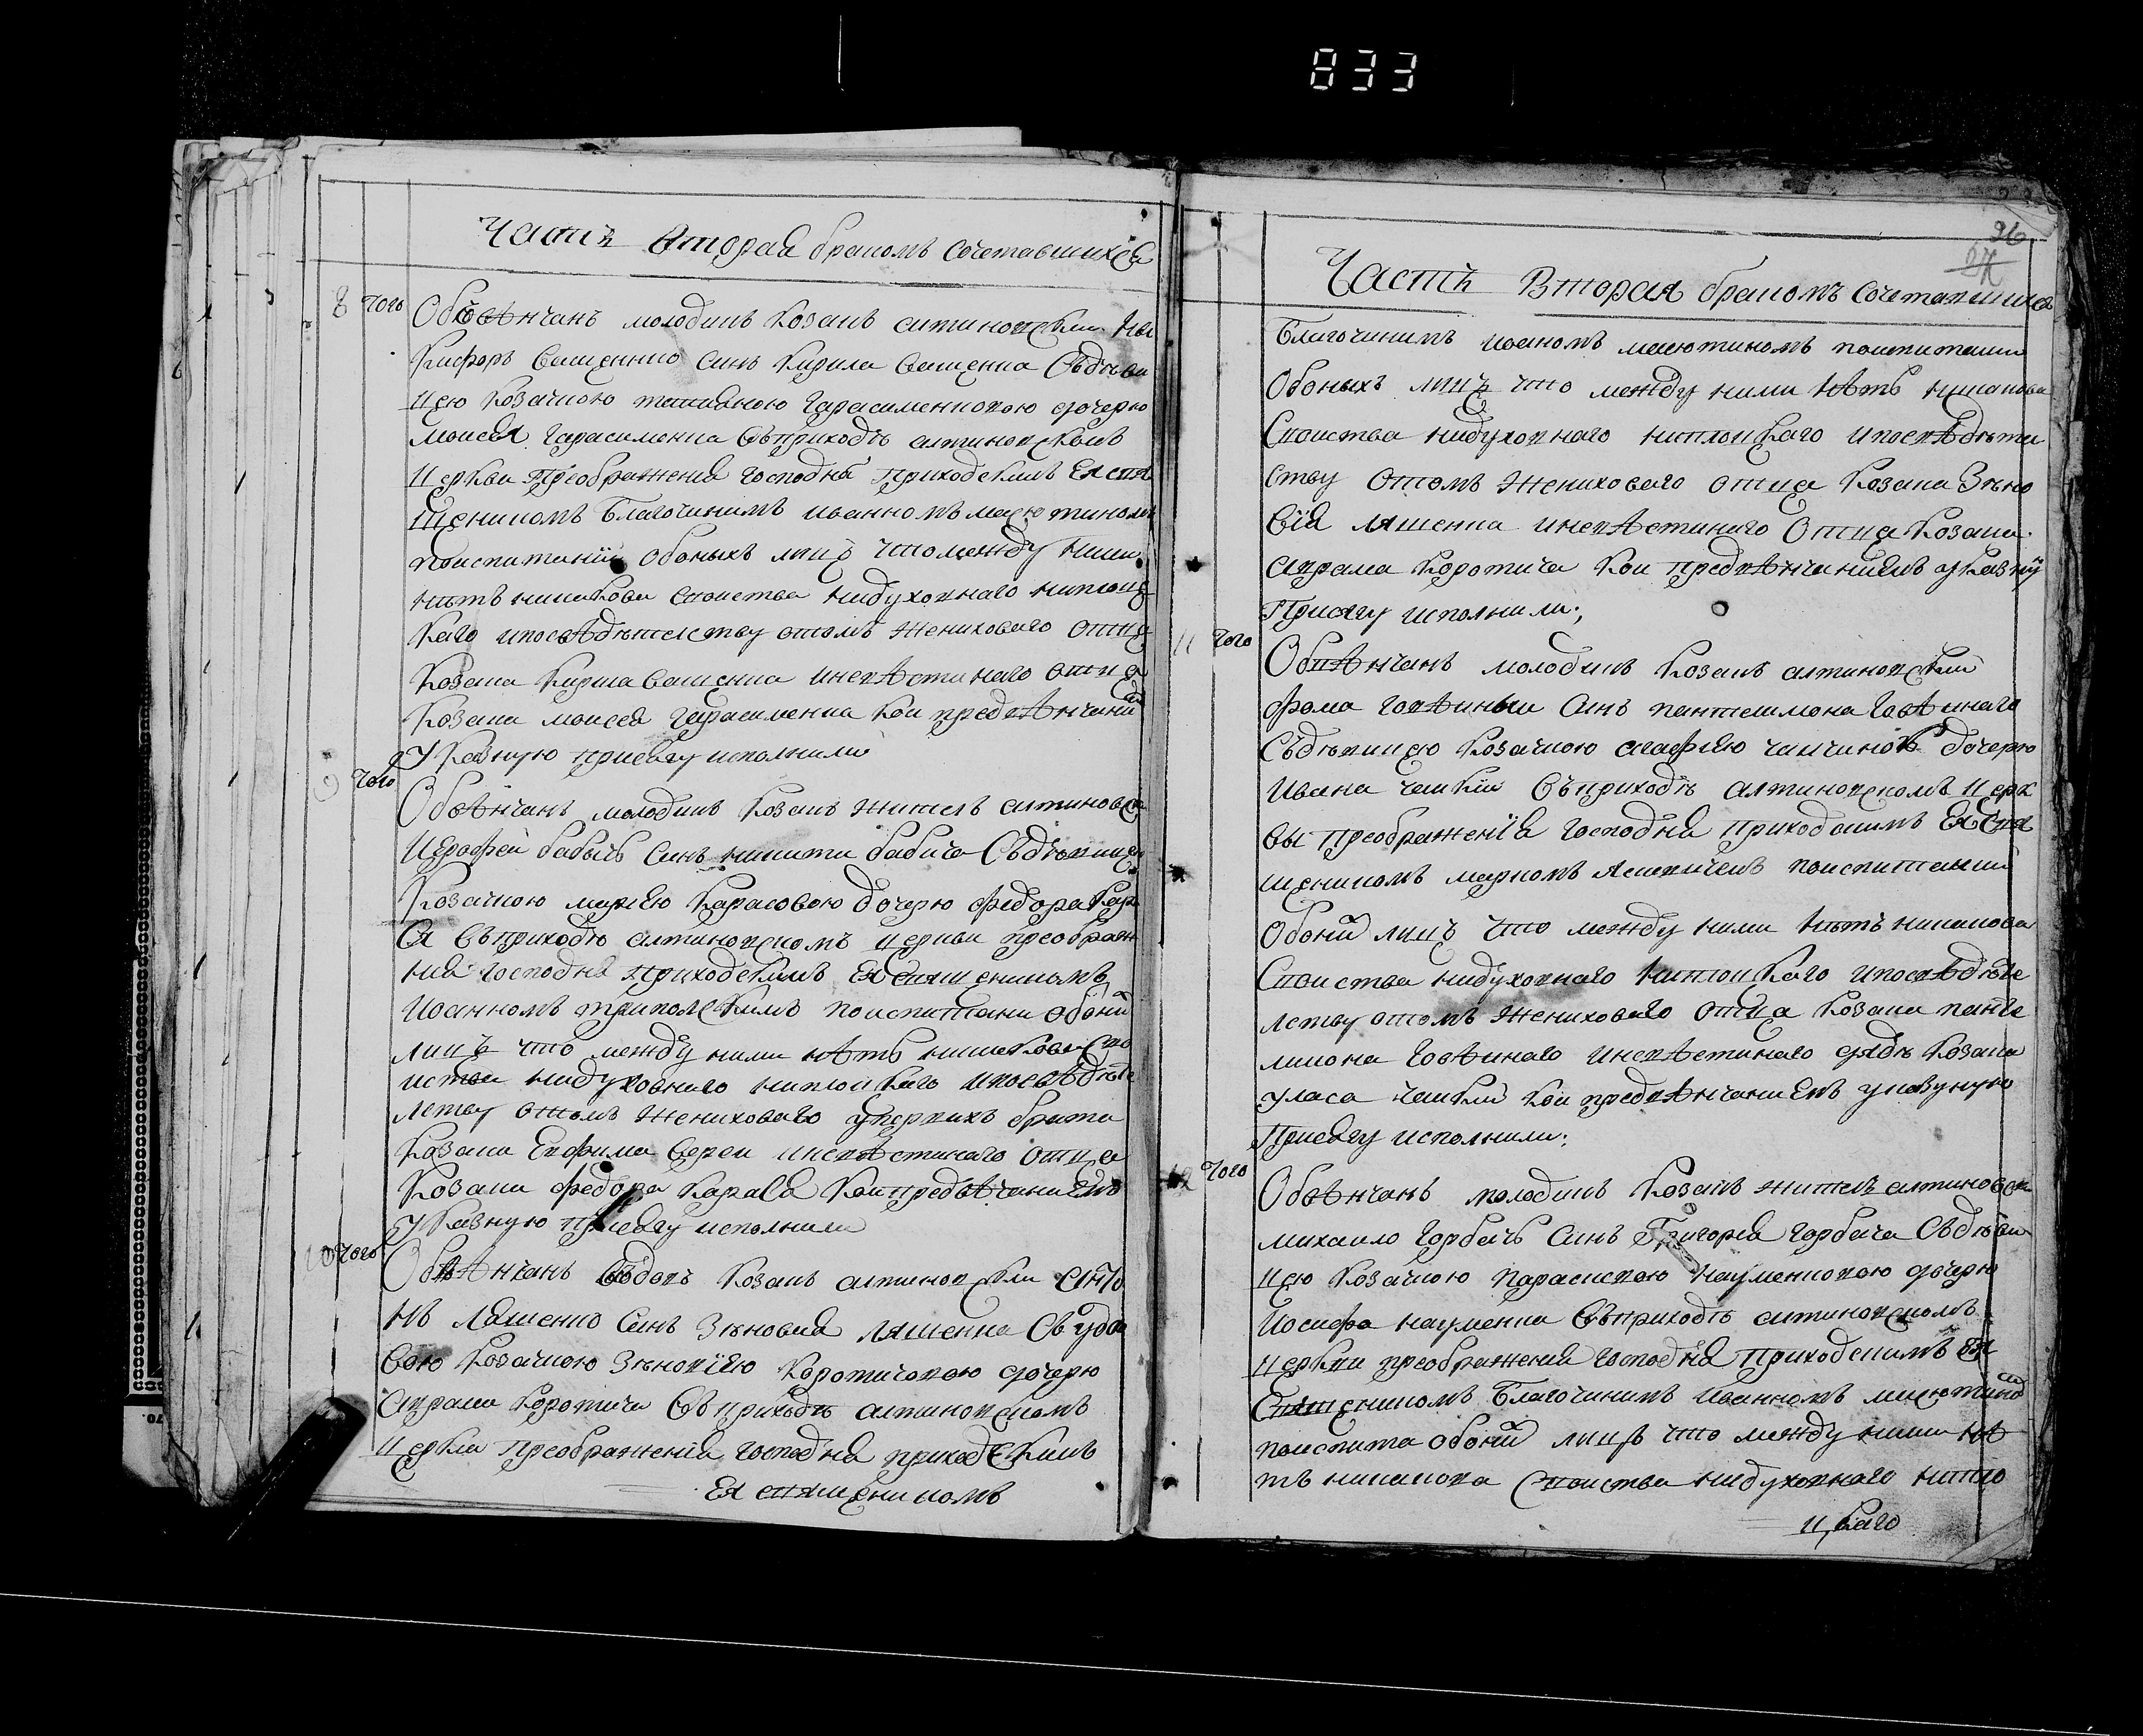 833
Часть Вторая бракомъ сочетавшихся
8 того Обвѣнчанъ молодикъ козакъ алтиновскии Ни
кифоръ Сащенко синъ Кирила Сащенка Съдѣви
цею козачкою Гарасименковою дочерю
моисея Гарасименка въприходѣ алтиновскомъ
церкви Преображения Господня Приходскимъ Ея свя
щеникомъ Благочинимъ иоанномъ масютиномъ
поиспитании обоихъ лицъ что между ними
нѣтъ никакова своиства нидуховнаго ниплоц
каго ипосвѣдѣтелству отомъ жениховаго отца
козака Кирила Сащенка иневѣстинаго отца
козака моисея Гарасименка кои предвѣнчани
указную присягу исполнили
9 того Обвѣнчанъ молодикъ козакъ жителъ алтиновск
Иерофей бабичъ синъ никити бабича Съдѣвицею
козачкою мариею Карасовою дочерю федора Кара
ся въприходѣ алтиновскомъ церкви преображе
ния господня приходскимъ Ея священикомъ
иоанномъ трипол̃скимъ поиспитани обоих
лицъ что между ними нѣтъ никакова сво
иства нидуховнаго ниплоцкаго ипосвѣдѣте
лству отомъ жениховаго брата
козака Евфима иневѣстинаго отца
козака федора Карася кои предвѣнчаниемъ
указную присягу исполнили
10 того Обвѣнчанъ вдовъ козакъ алтиновскии
Ляшенко синъ Зѣновия ляшенка Съ удо
вою козачкою Зѣновиею Коротичовою дочерю
Аврама Коротича въ приходѣ алтиновскомъ
церкви Преображения господня приходскимъ
Ея священикомъ
96
Часть Вторая бракомъ сочетавшихся
Благочинимъ иоаномъ масютиномъ поиспитании
обоихъ лицъ что между ними нѣтъ никакова
своиства нидуховнаго ниплоцкаго ипосвѣдѣти
ству отомъ жениховаго отца козака Зѣно
вія ляшенка иневѣстинаго отца козака
аврама Коротича кои предвѣнчаниемъ указну
Присягу исполнили;
11 того Обвѣнчанъ молодикъ козакъ алтиновскии
фома говѣиныи синъ пантелимона Говѣинаго
Съдѣвицею козачкою агафиею дочерю
Ивана въприходѣ алтиновскомъ церк
вы преображения Господня приходскимъ Ея свя
щеникомъ маркомъ поиспитании
обоих лицъ что между ними нѣтъ никакова
своиства нидуховнаго ниплоцкаго ипосвѣдѣте
лству отомъ жениховаго отца козака панте
лимона Говѣинаго иневѣстинаго дядѣ козака
уласа кои предвѣнчаниемъ указную
Присягу исполнили:
12 того Обвѣнчанъ молодикъ козакъ жителъ алтиновск
михаило Горбачъ синъ Григория Горбача Съдѣви
цею козачкою параскевою Науменковою дочерю
Иосифа науменка въприходѣ алтиновскомъ
церкви преображения господня Приходскимъ Ея
священикомъ Благочинимъ иоанномъ масютино
поиспита обоих лицъ что между ними нѣ
тъ никакова своиства нидуховнаго нипло
цкаго